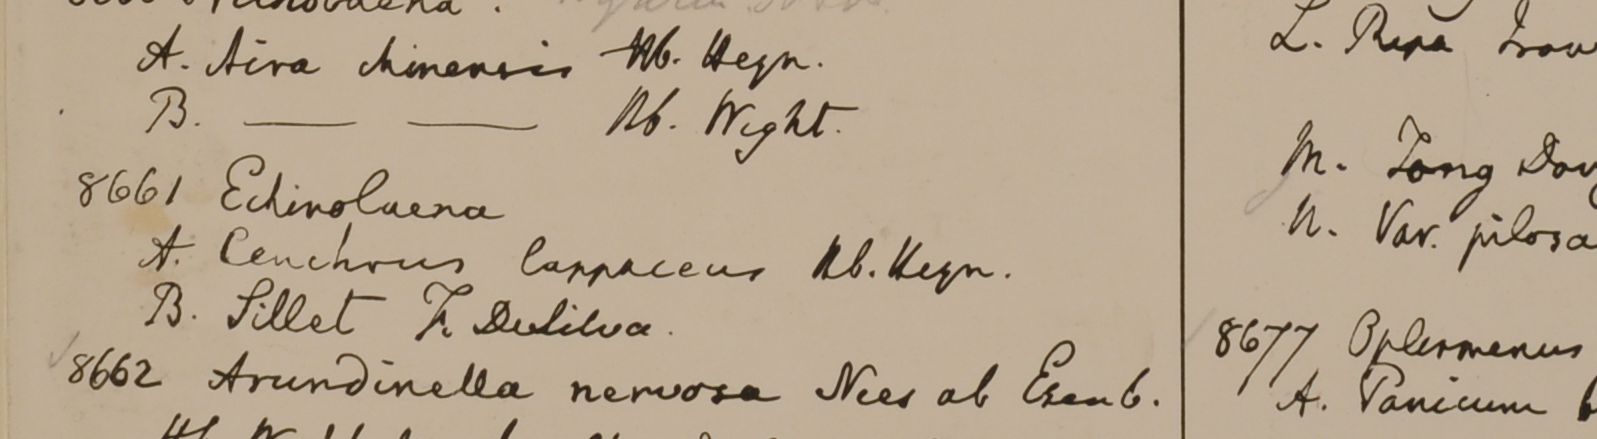 A. Aira chinensis Hb. Heyn.
B. — — Hb. Wight.
8661 Echinolaena
A. Cenchrus lappaceus Hb. Heyn.
B. Sillet F. DeSilva.
8662 Arundinella nervosa Nees ab Esenb.
L.
M. Tong
N. Var. pilosa
8677 Oplismenus
A. Panicum